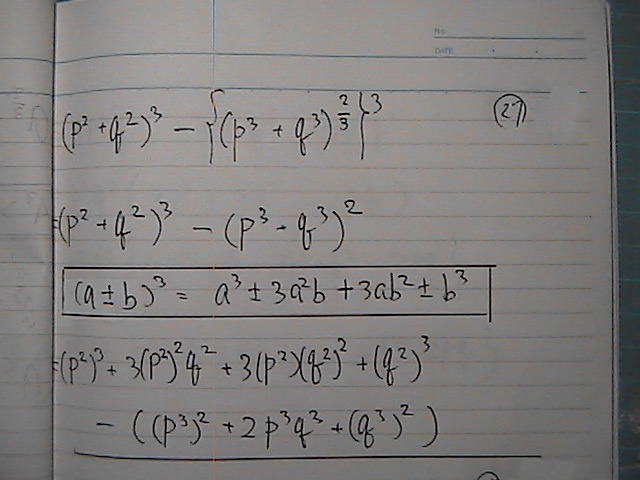 NO.
DATE
(p² + q²)³ − {(p³ + q³)^{2/3}}³ (27)
=(p² + q²)³ − (p³ + q³)²
(a ± b)³ = a³ ± 3a²b + 3ab² ± b³
=(p²)³ + 3(p²)²q² + 3(p²)(q²)² + (q²)³
− ((p³)² + 2p³q³ + (q³)²)